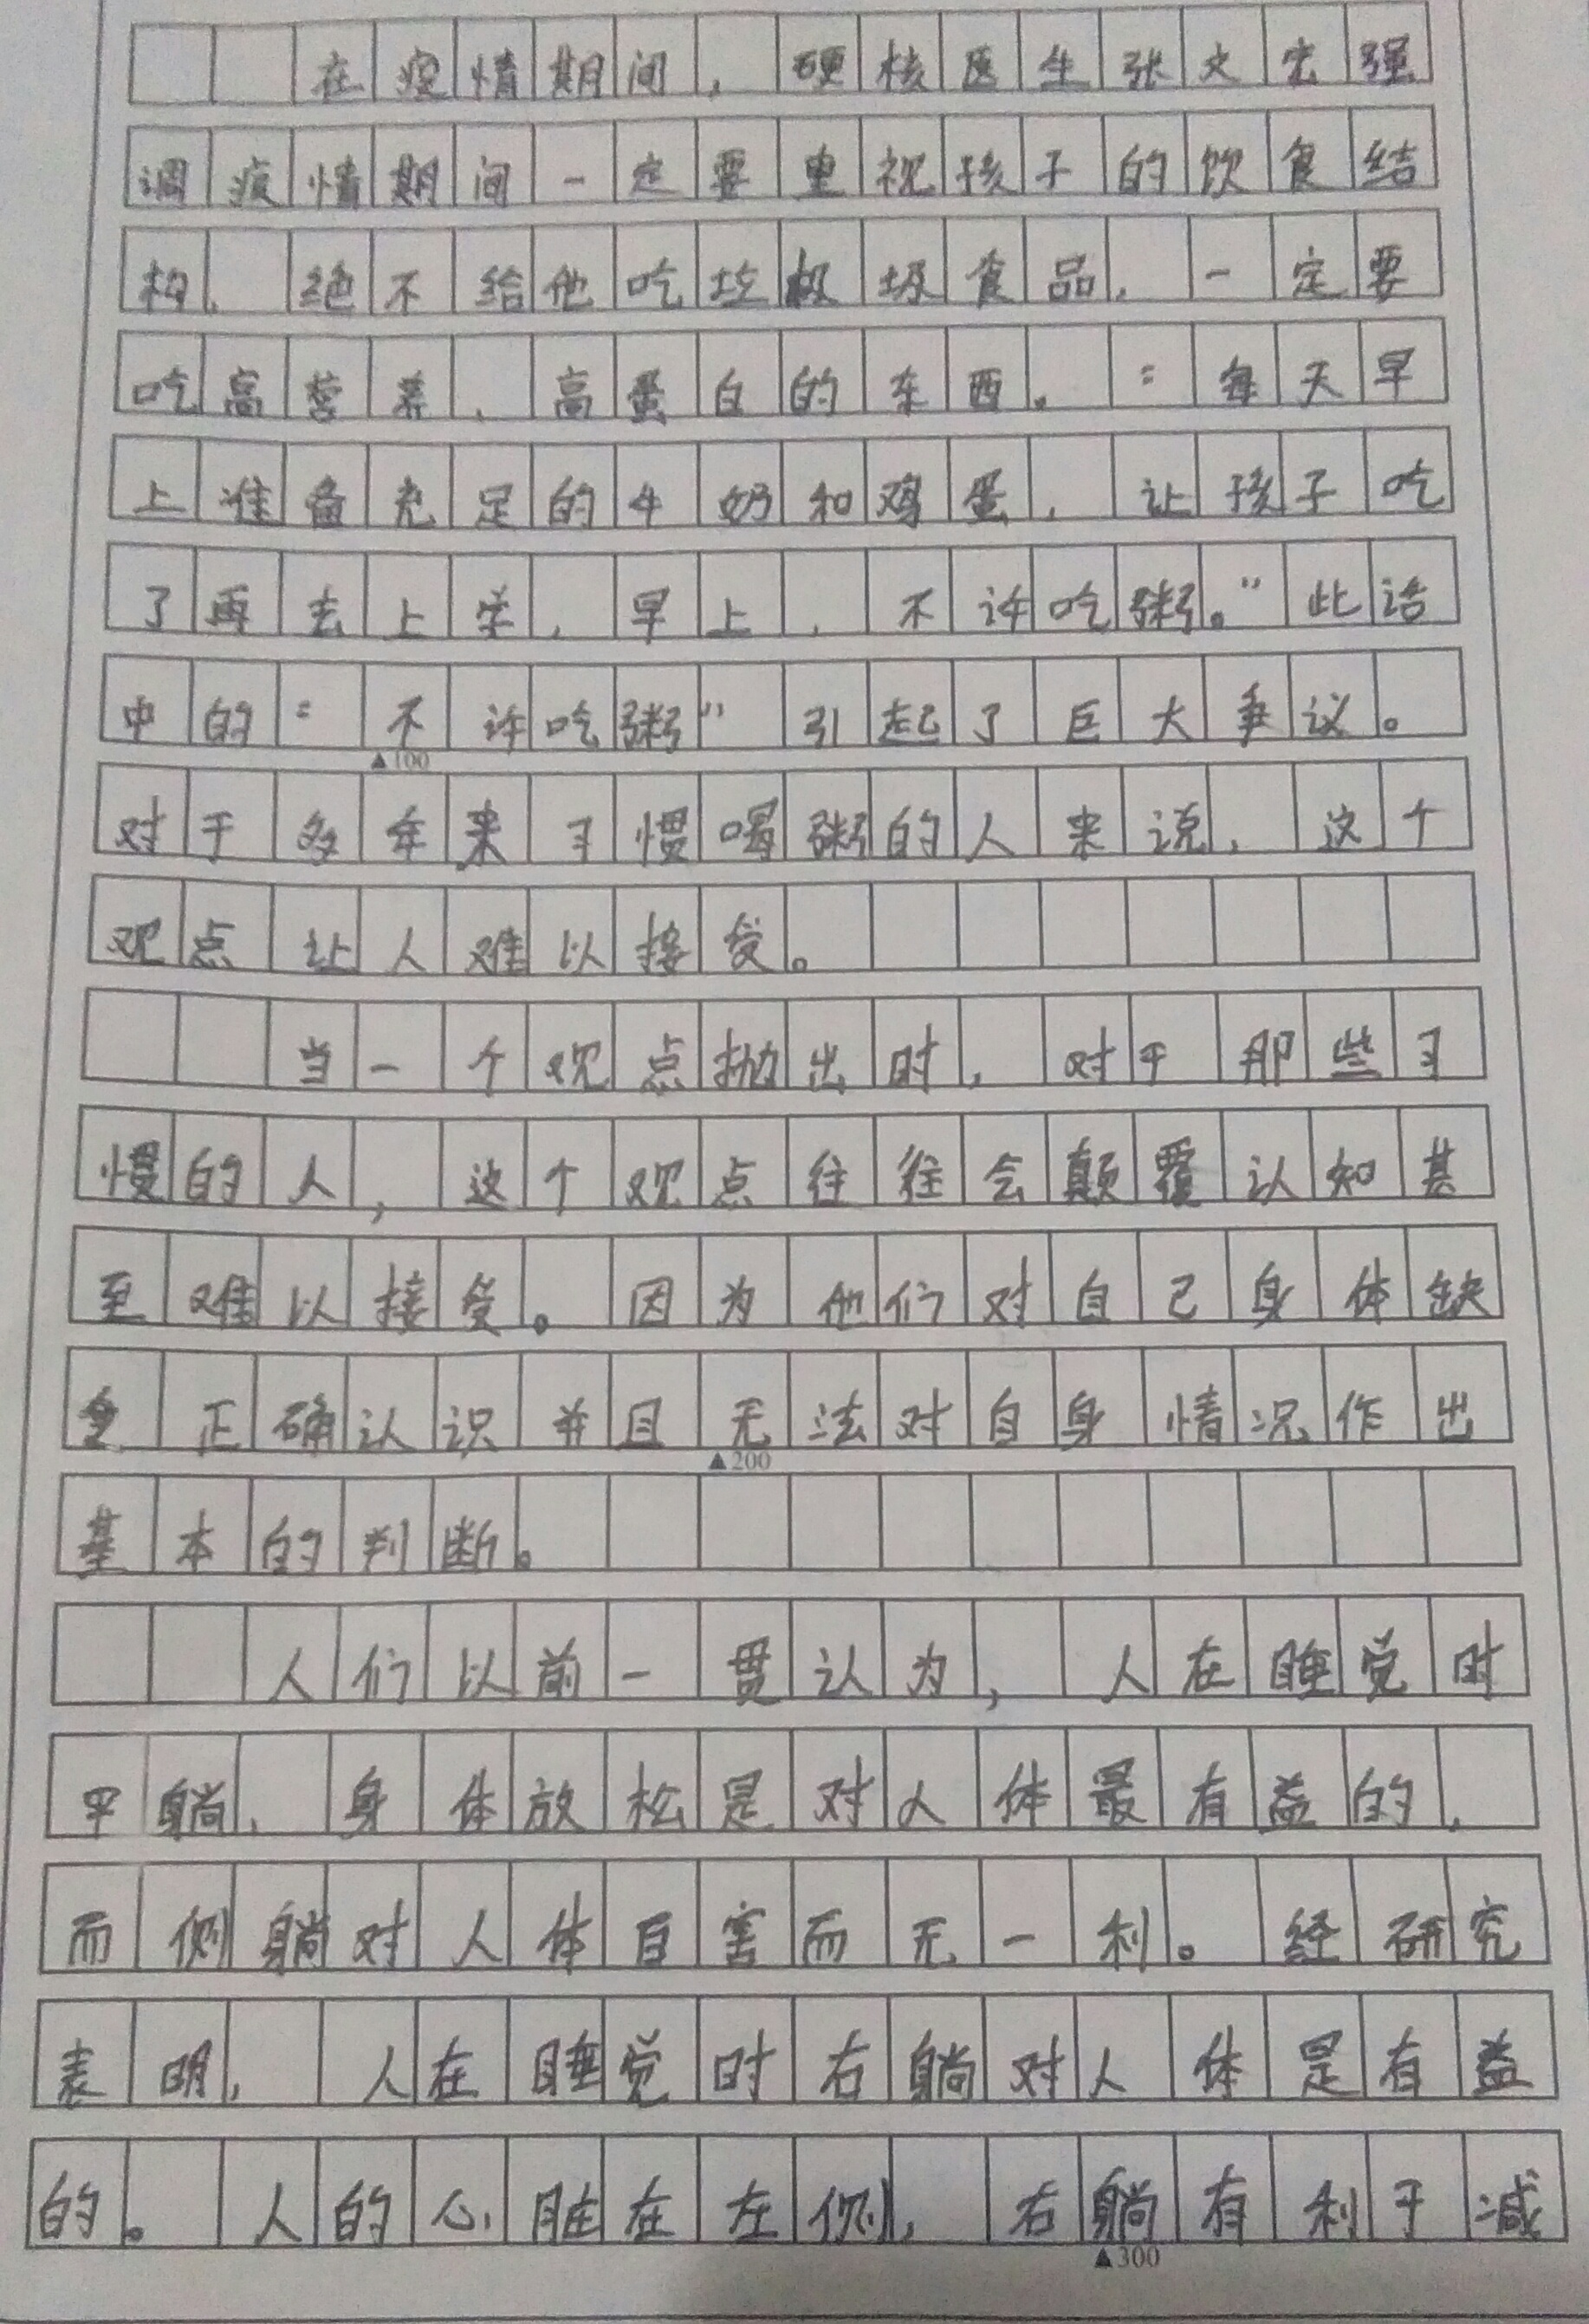 在疫情期间，硬核医生张文宏强
调疫情期间一定要重视孩子的饮食结
构，绝不给他吃垃极圾食品，一定要
吃高营养、高蛋白的东西。“每天早
上准备充足的牛奶和鸡蛋，让孩子吃
了再去上学，早上，不许吃粥。”此话
中的“不许吃粥”引起了巨大争议。
▲100
对于多年来习惯喝粥的人来说，这个
观点让人难以接受。
当一个观点抛出时，对于那些习
惯的人，这个观点往往会颠覆认知甚
至难以接受。因为他们对自己身体缺
乏正确认识并且无法对自身情况作出
▲200
基本的判断。
人们以前一贯认为，人在睡觉时
平躺、身体放松是对人体最有益的，
而侧躺对人体百害而无一利。经研究
表明，人在睡觉时右躺对人体是有益
的。人的心脏在左侧，右躺有利于减
▲300